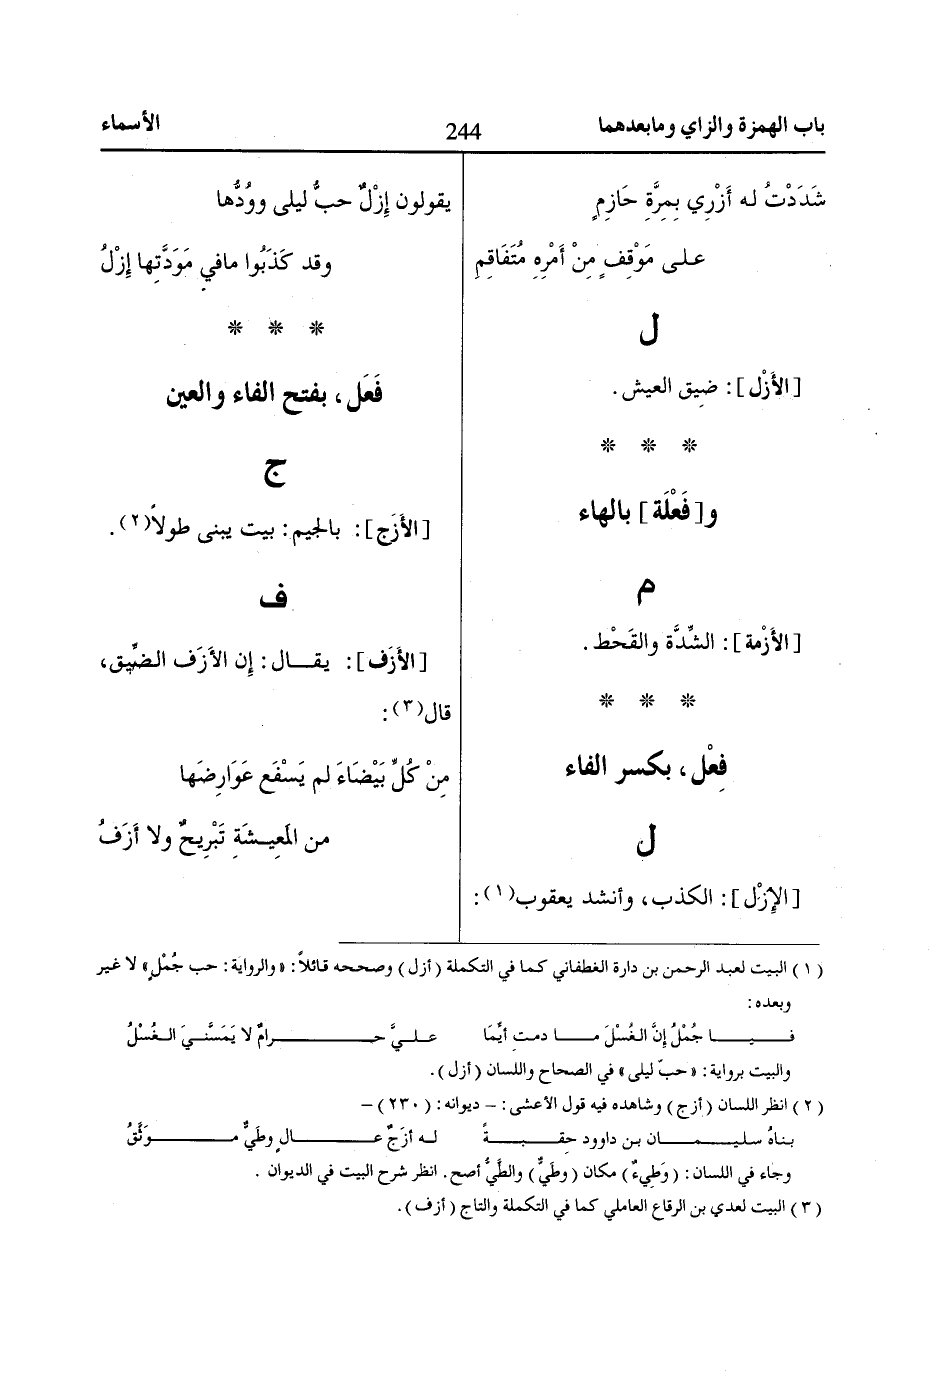 باب الهمزة والزاي ومابعدهما
244
الأسماء
شَدَدْتُ له أَزْرِي بِمِرَّةِ حَازِمٍ
على مَوْقِفٍ مِنْ أَمْرِهِ مُتَفَاقِمِ
ل
[الأَزْل]: ضيق العيش.
* * *
و[فَعْلَة] بالهاء
م
[الأَزْمة]: الشِّدَّة والقَحْط.
* * *
فِعْل، بكسر الفاء
ل
[الإِزْل]: الكذب، وأنشد يعقوب(١):
يقولون إِزْلٌ حبُّ ليلى وودُّها
وقد كَذَبُوا مافي مَوَدَّتِها إِزْلُ
* * *
فَعَل، بفتح الفاء والعين
ج
[الأَزَج]: بالجيم: بيت يبنى طولاً(٢).
ف
[الأَزَف]: يقال: إن الأزَف الضيِّق،
قال(٣):
مِنْ كُلِّ بَيْضَاءَ لم يَسْفَع عَوَارِضَها
من المَعِيشَةِ تَبْرِيحٌ ولا أزَفُ
(١) البيت لعبد الرحمن بن دارة الغطفاني كما في التكملة (أزل) وصححه قائلاً: «والرواية: حب جُمْلٍ» لا غير
وبعده:
فيا جُمْلُ إنَّ الغُسْلَ ما دمتِ أيِّمًا عليَّ حرامٌ لا يَمَسَّنيَ الغُسْلُ
والبيت برواية: «حبّ ليلى» في الصحاح واللسان (أزل).
(٢) انظر اللسان (أزج) وشاهده فيه قول الأعشى: – ديوانه: (٢٣٠) –
بناهُ سليمان بن داوود حقبةً له أزَجٌ عالٍ وطَيٌّ موَثَّقُ
وجاء في اللسان: (وَطيءٌ) مكان (وطَيٌّ) والطَّيُّ أصح. انظر شرح البيت في الديوان.
(٣) البيت لعدي بن الرقاع العاملي كما في التكملة والتاج (أزف).